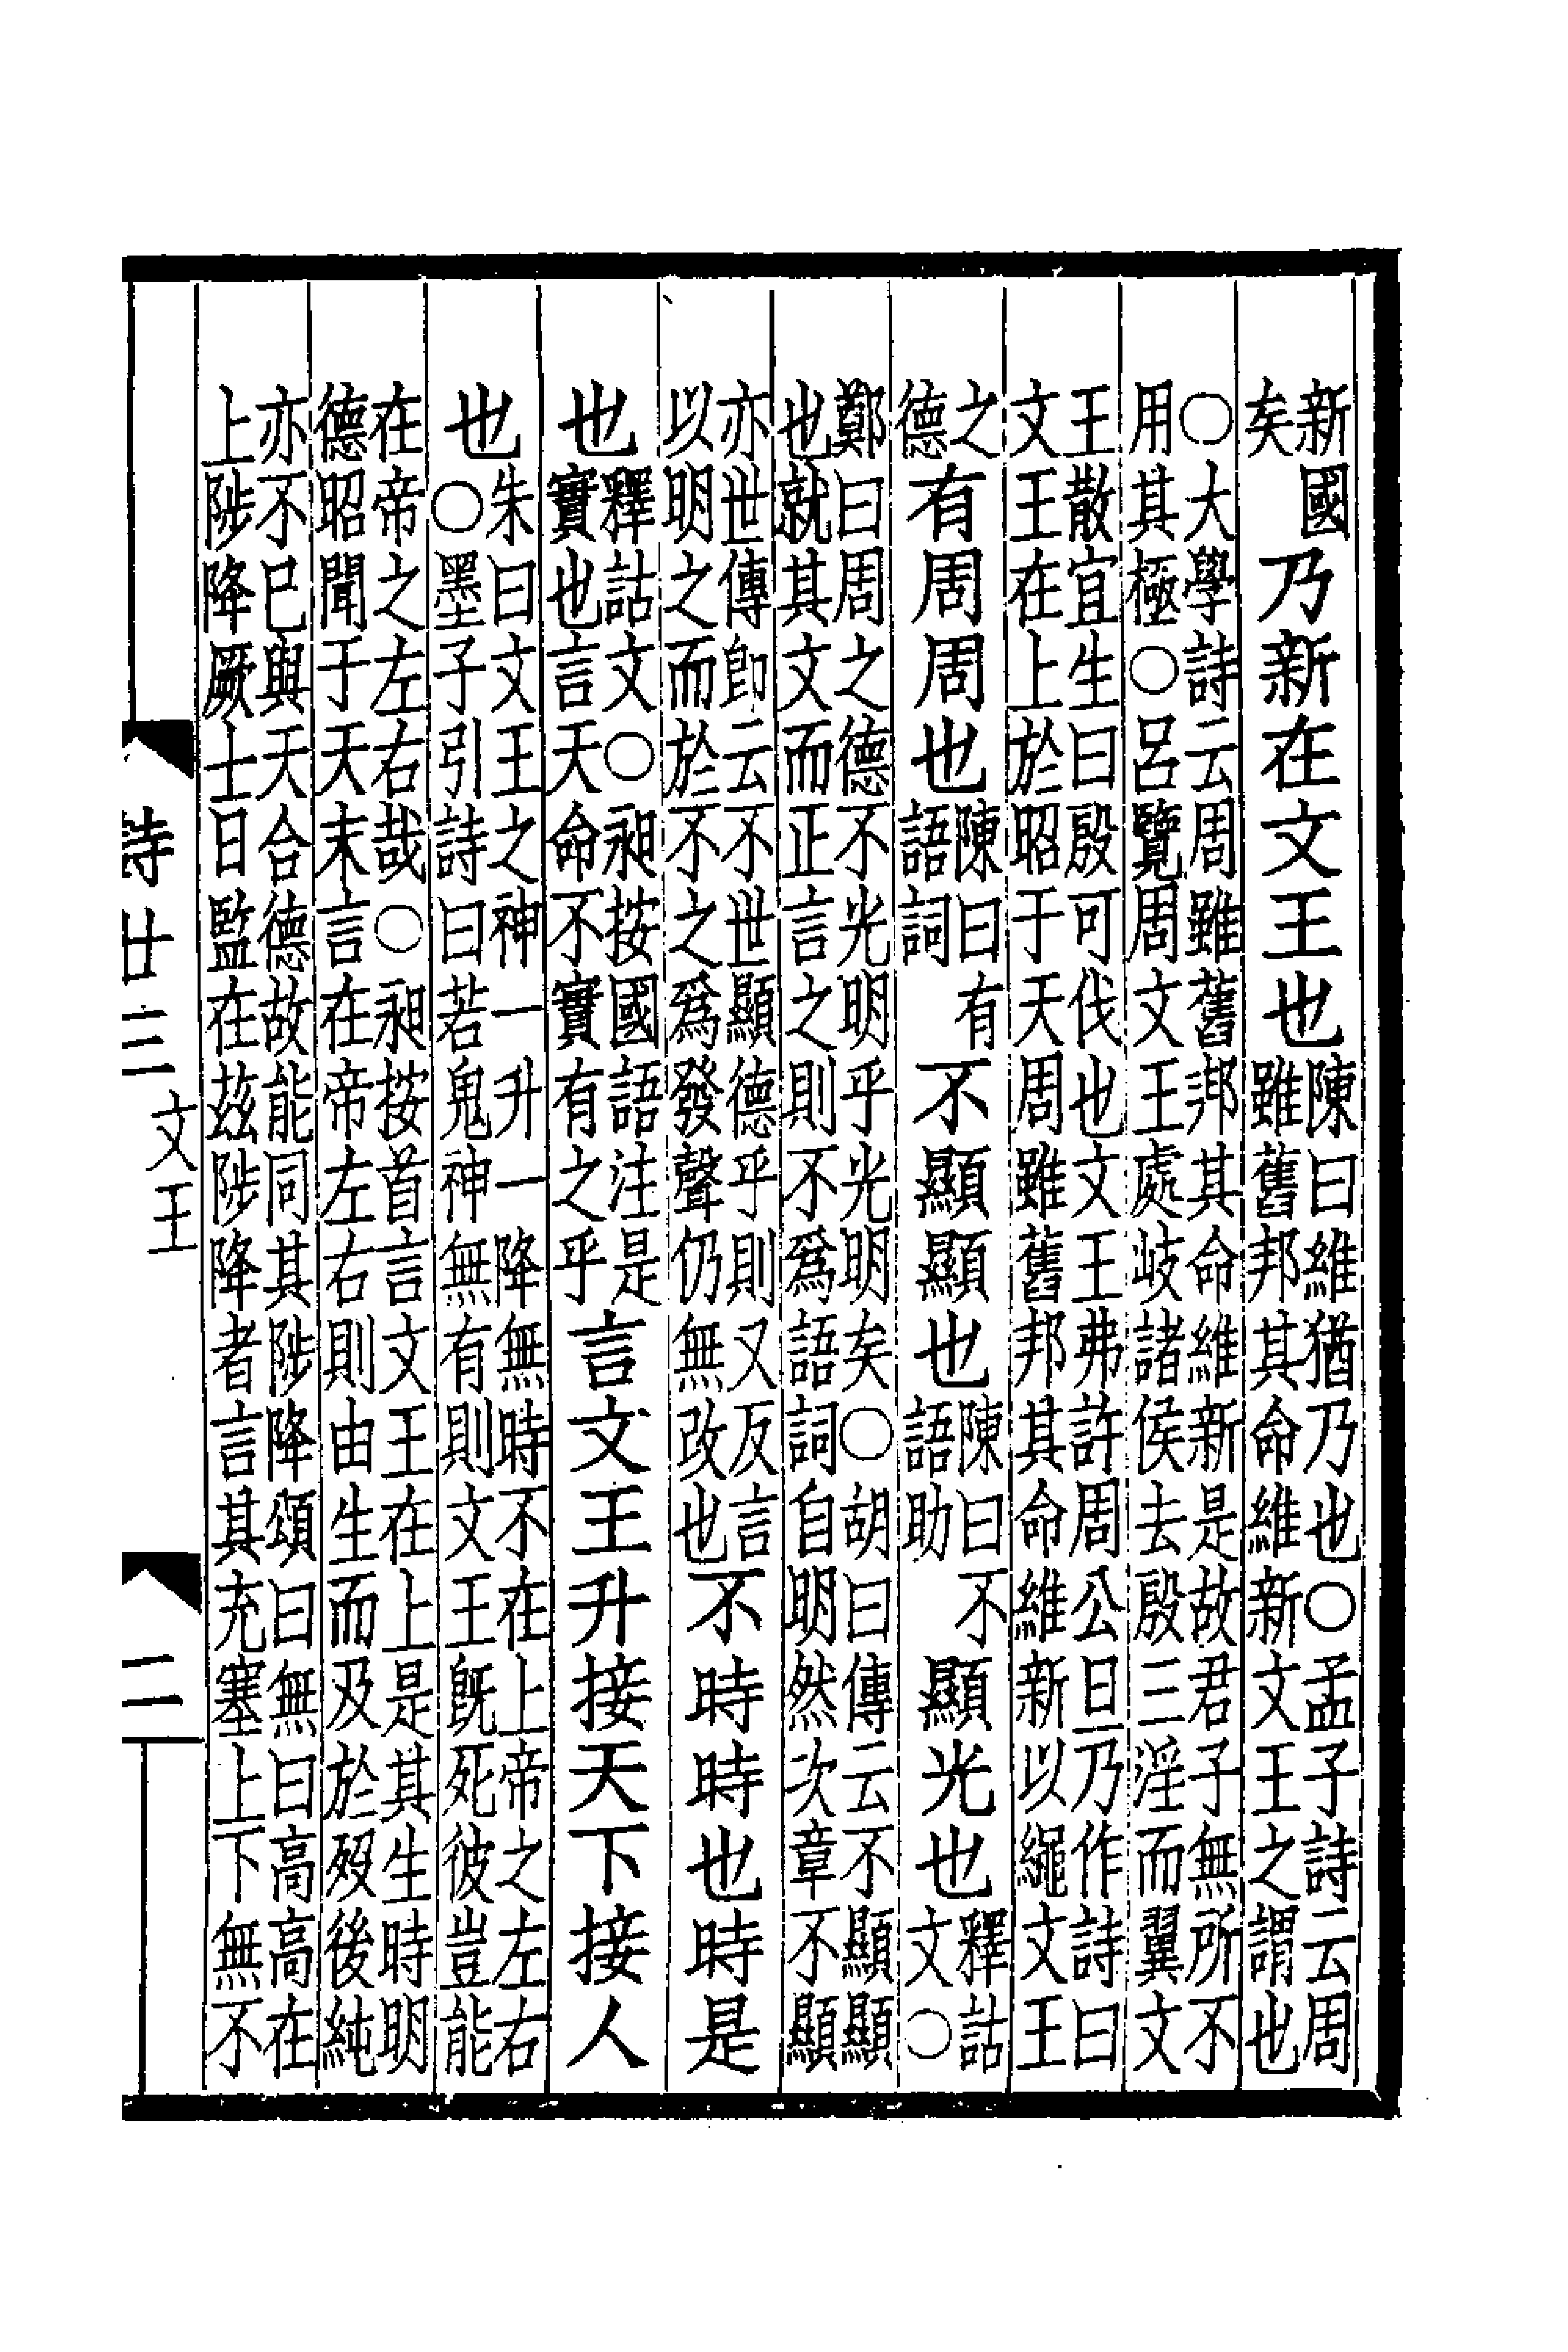 新國矣乃新在文王也陳曰維猶乃也○孟子詩云周雖舊邦其命維新文王之謂也
○大學詩云周雖舊邦其命維新是故君子無所不用其極○呂覽周文王處岐諸侯去殷三淫而翼文
王散宜生曰殷可伐也文王弗許周公旦乃作詩曰文王在上於昭于天周雖舊邦其命維新以繩文王
之德有周周也陳曰有語詞不顯顯也陳曰不語助顯光也釋詁文○
鄭曰周之德不光明乎光明矣○胡曰傳云不顯顯也就其文而正言之則不爲語詞自明然次章不顯
亦世傳卽云不世顯德乎則又反言以明之而於不之爲發聲仍無改也不時時也時是
也釋詁文○昶按國語注是實也言天命不實有之乎言文王升接天下接人
也朱曰文王之神一升一降無時不在上帝之左右○墨子引詩曰若鬼神無有則文王旣死彼豈能
在帝之左右哉○昶按首言文王在上是其生時明德昭聞于天末言在帝左右則由生而及於歿後純
亦不已與天合德故能同其陟降頌曰無曰高高在上陟降厥士日監在茲陟降者言其充塞上下無不
詩廿三 文王 二